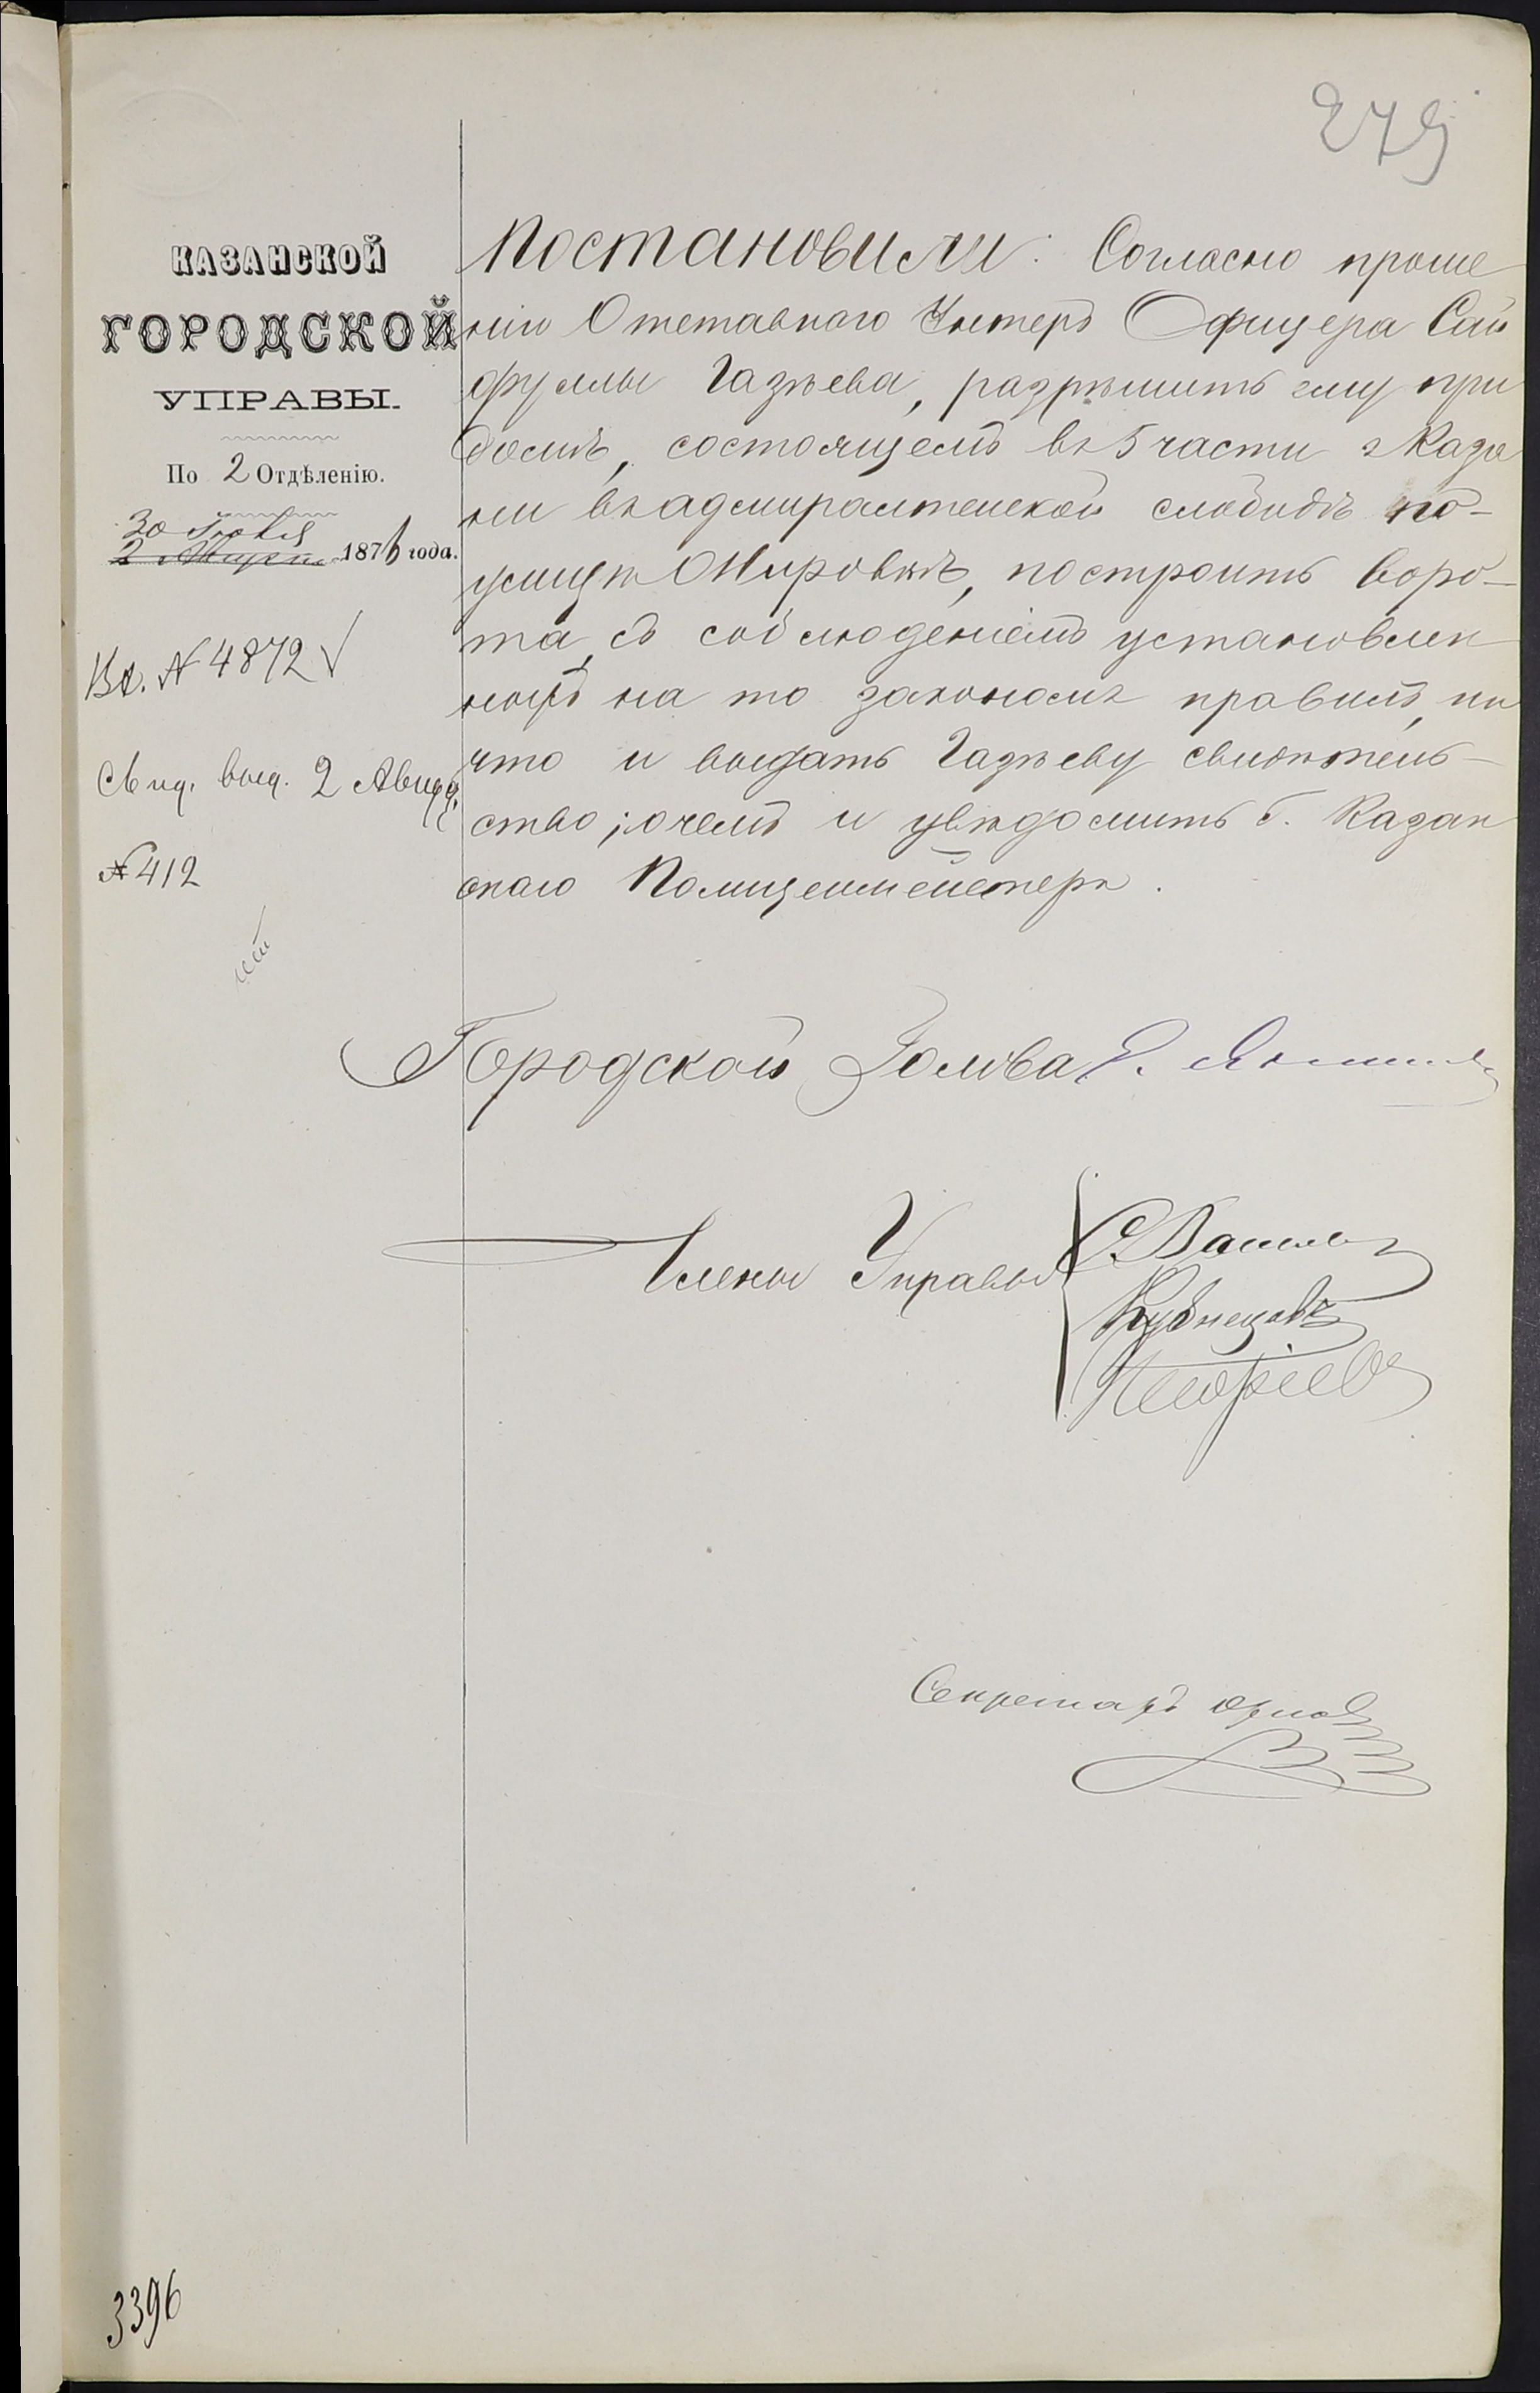 279
КАЗАНСКОЙ
ГОРОДСКОЙ
УПРАВЫ.
По 2 Отдѣленію.
30 Іюля
2 Марта 1876 года.
Вх. № 4872 √
Свид. выд. 2 Август.
№ 412
Постановили: Согласно проше
нію Отставного Унтеръ Офицера Сай
фуллы Газѣева, разрѣшить ему при
домѣ, состоящемъ въ 5 части г Каза
ни въ адмиралтейской слободѣ по
улицѣ Мировкѣ, построить воро-
та, съ соблюденіемъ установлен
ныхъ на то закономъ правилъ, на
что и выдать Газѣеву свидѣтель-
ство; о чемъ и увѣдомить Г. Казан
скаго Полицеймейстера.
Городской Голова Э. Янишевскій
Члены Управы
Кузнецовъ
Секретарь
3396